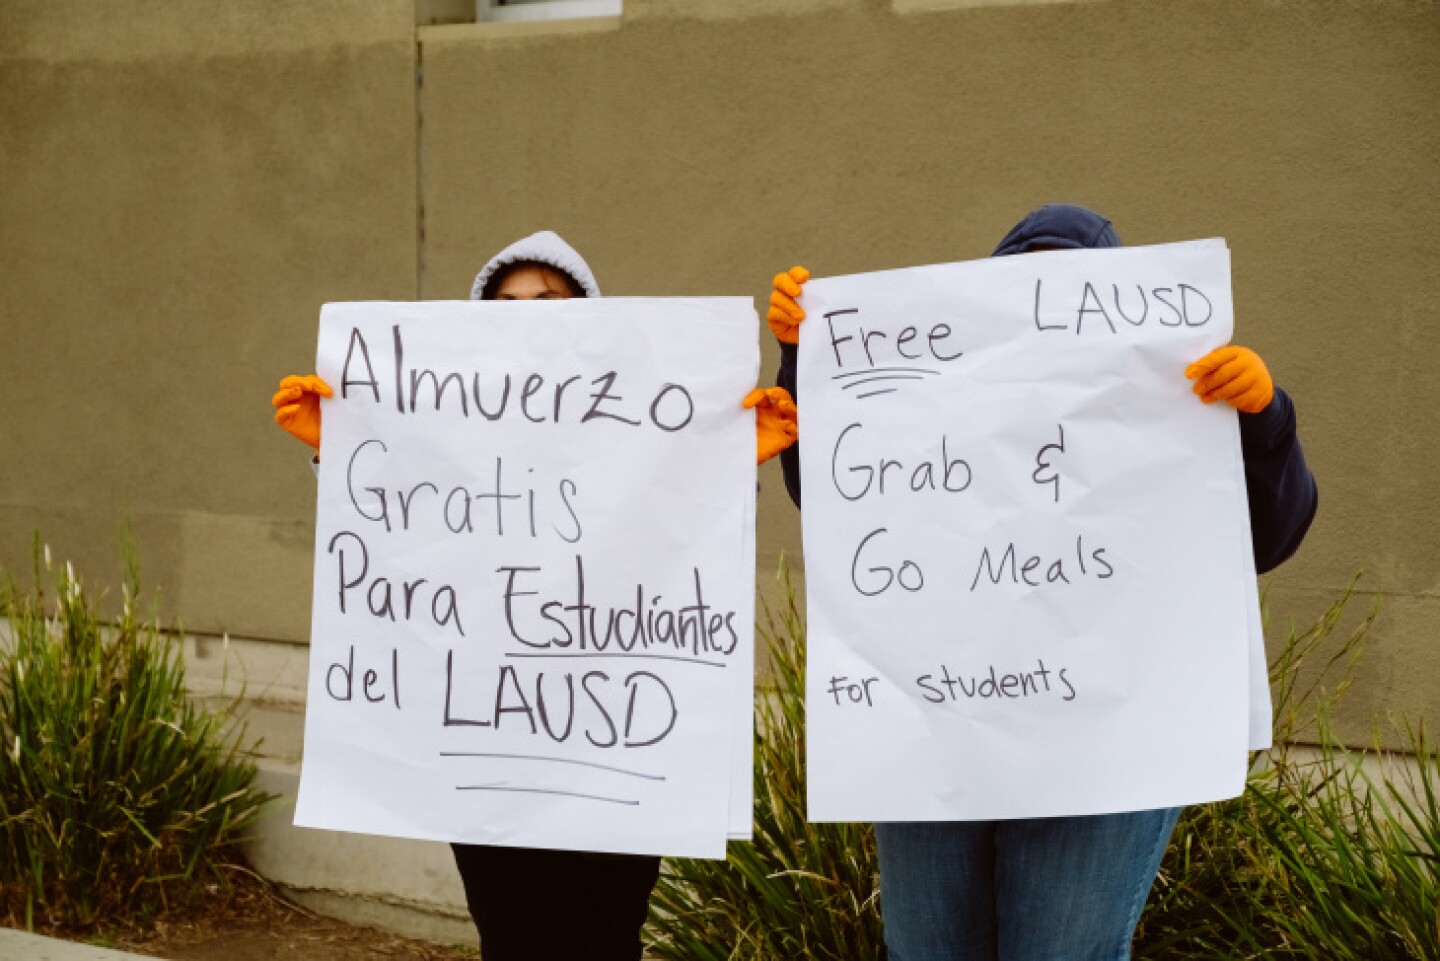 Almuerzo
Gratis
Para Estudiantes
del LAUSD
Free LAUSD
Grab &
Go Meals
For students